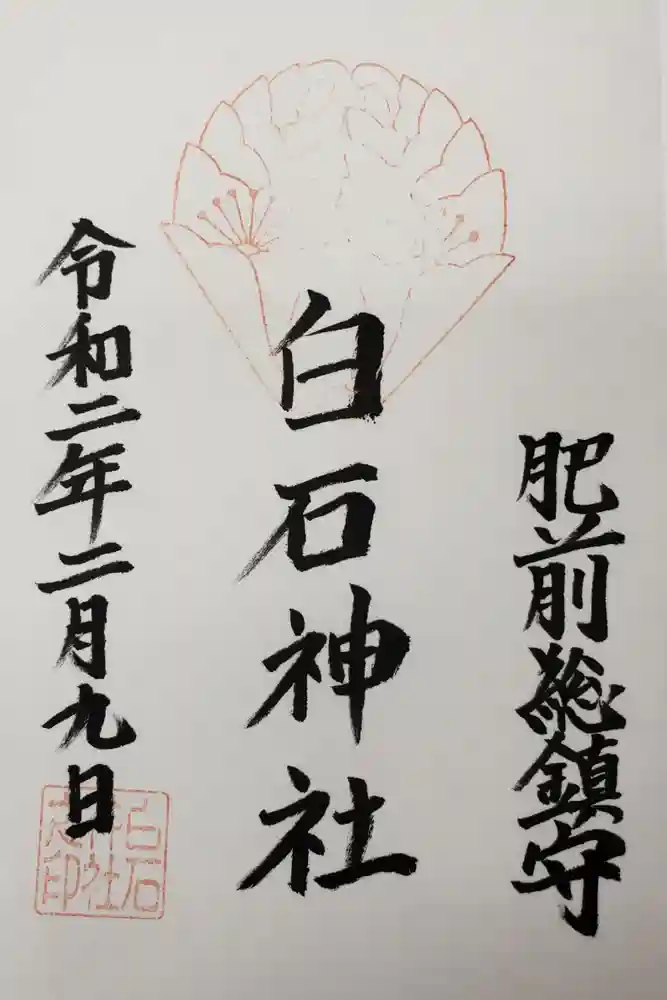 肥前総鎮守
白石神社
令和二年二月九日
白石
神社
之印